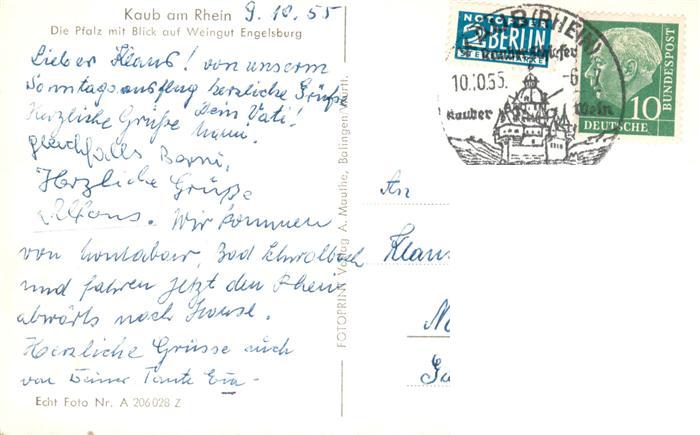 Kaub am Rhein 9.10.55
Die Pfalz mit Blick auf Weingut Engelsburg
Lieber Klaus! von unserm
Sonntagsausflug herzliche Grüße
Dein Vati!
Herzliche Grüße
gleichfalls
Herzliche Grüße
Alfons. Wir kommen
von Montabaur, Bad Schwalbach
und fahren jetzt den Rhein
abwärts nach Hause.
Herzliche Grüsse auch
von Deiner Tante Eva-
Echt Foto Nr. A 206028 Z
FOTOPRINT Verlag A. Mauthe, Balingen Württ.
NOTOPFER
2 BERLIN
STEUERMARKE
(RHEIN)
10.10.55.
Kauber
Wein
10
DEUTSCHE
BUNDESPOST
An
Klaus